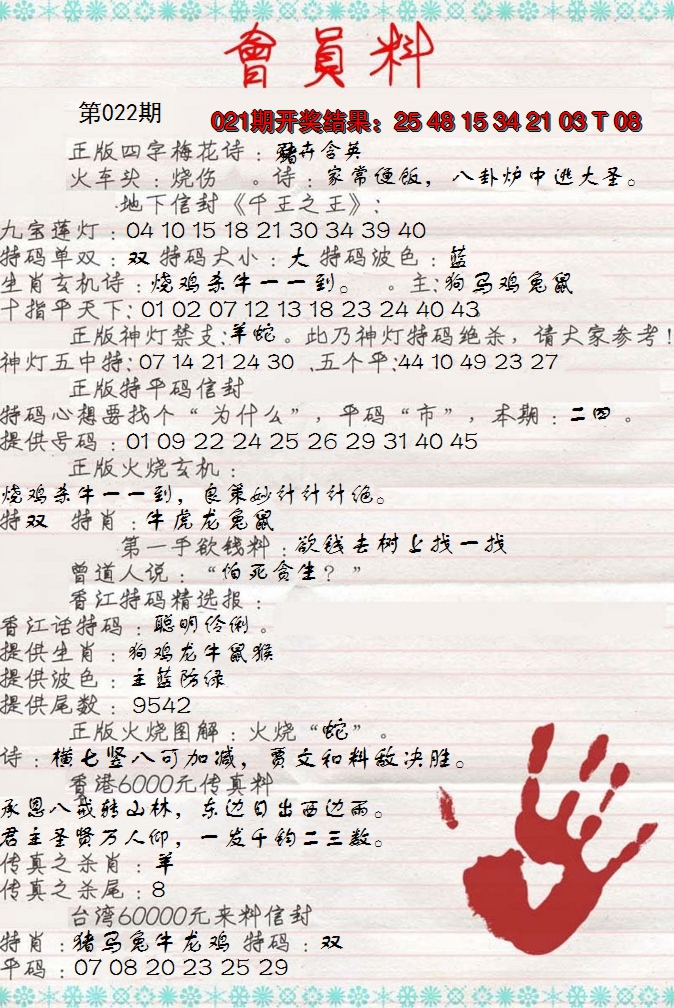 會員料
第022期
021期开奖结果：25 48 15 34 21 03 T 08
正版四字梅花诗：豬卉含英
火车头：烧伤 。诗：家常便饭，八卦炉中逃大圣。
地下信封《千王之王》：
九宝莲灯：04 10 15 18 21 30 34 39 40
特码单双：双 特码大小：大 特码波色：蓝
生肖玄机诗：烧鸡杀牛一一到。 。主：狗马鸡兔鼠
十指平天下：01 02 07 12 13 18 23 24 40 43
正版神灯禁支：羊蛇。此乃神灯特码绝杀，请大家参考！
神灯五中特：07 14 21 24 30 、五个平：44 10 49 23 27
正版特平码信封
特码心想要找个“为什么”，平码“市”，本期：二四 。
提供号码：01 09 22 24 25 26 29 31 40 45
正版火烧玄机：
烧鸡杀牛一一到，良策妙计计计绝。
特双 特肖：牛虎龙兔鼠
第一手欲钱料：欲钱去树上找一找
曾道人说：“怕死贪生？”
香江特码精选报：
香江话特码：聪明伶俐。
提供生肖：狗鸡龙牛鼠猴
提供波色：主蓝防绿
提供尾数：9542
正版火烧图解：火烧“蛇”。
诗：横七竖八可加减，贾文和料敌决胜。
香港6000元传真料
承恩八戒转山林，东边日出西边雨。
君主圣贤万人仰，一发千钧二三数。
传真之杀肖：羊
传真之杀尾：8
台湾60000元来料信封
特肖：猪马兔牛龙鸡 特码：双
平码：07 08 20 23 25 29